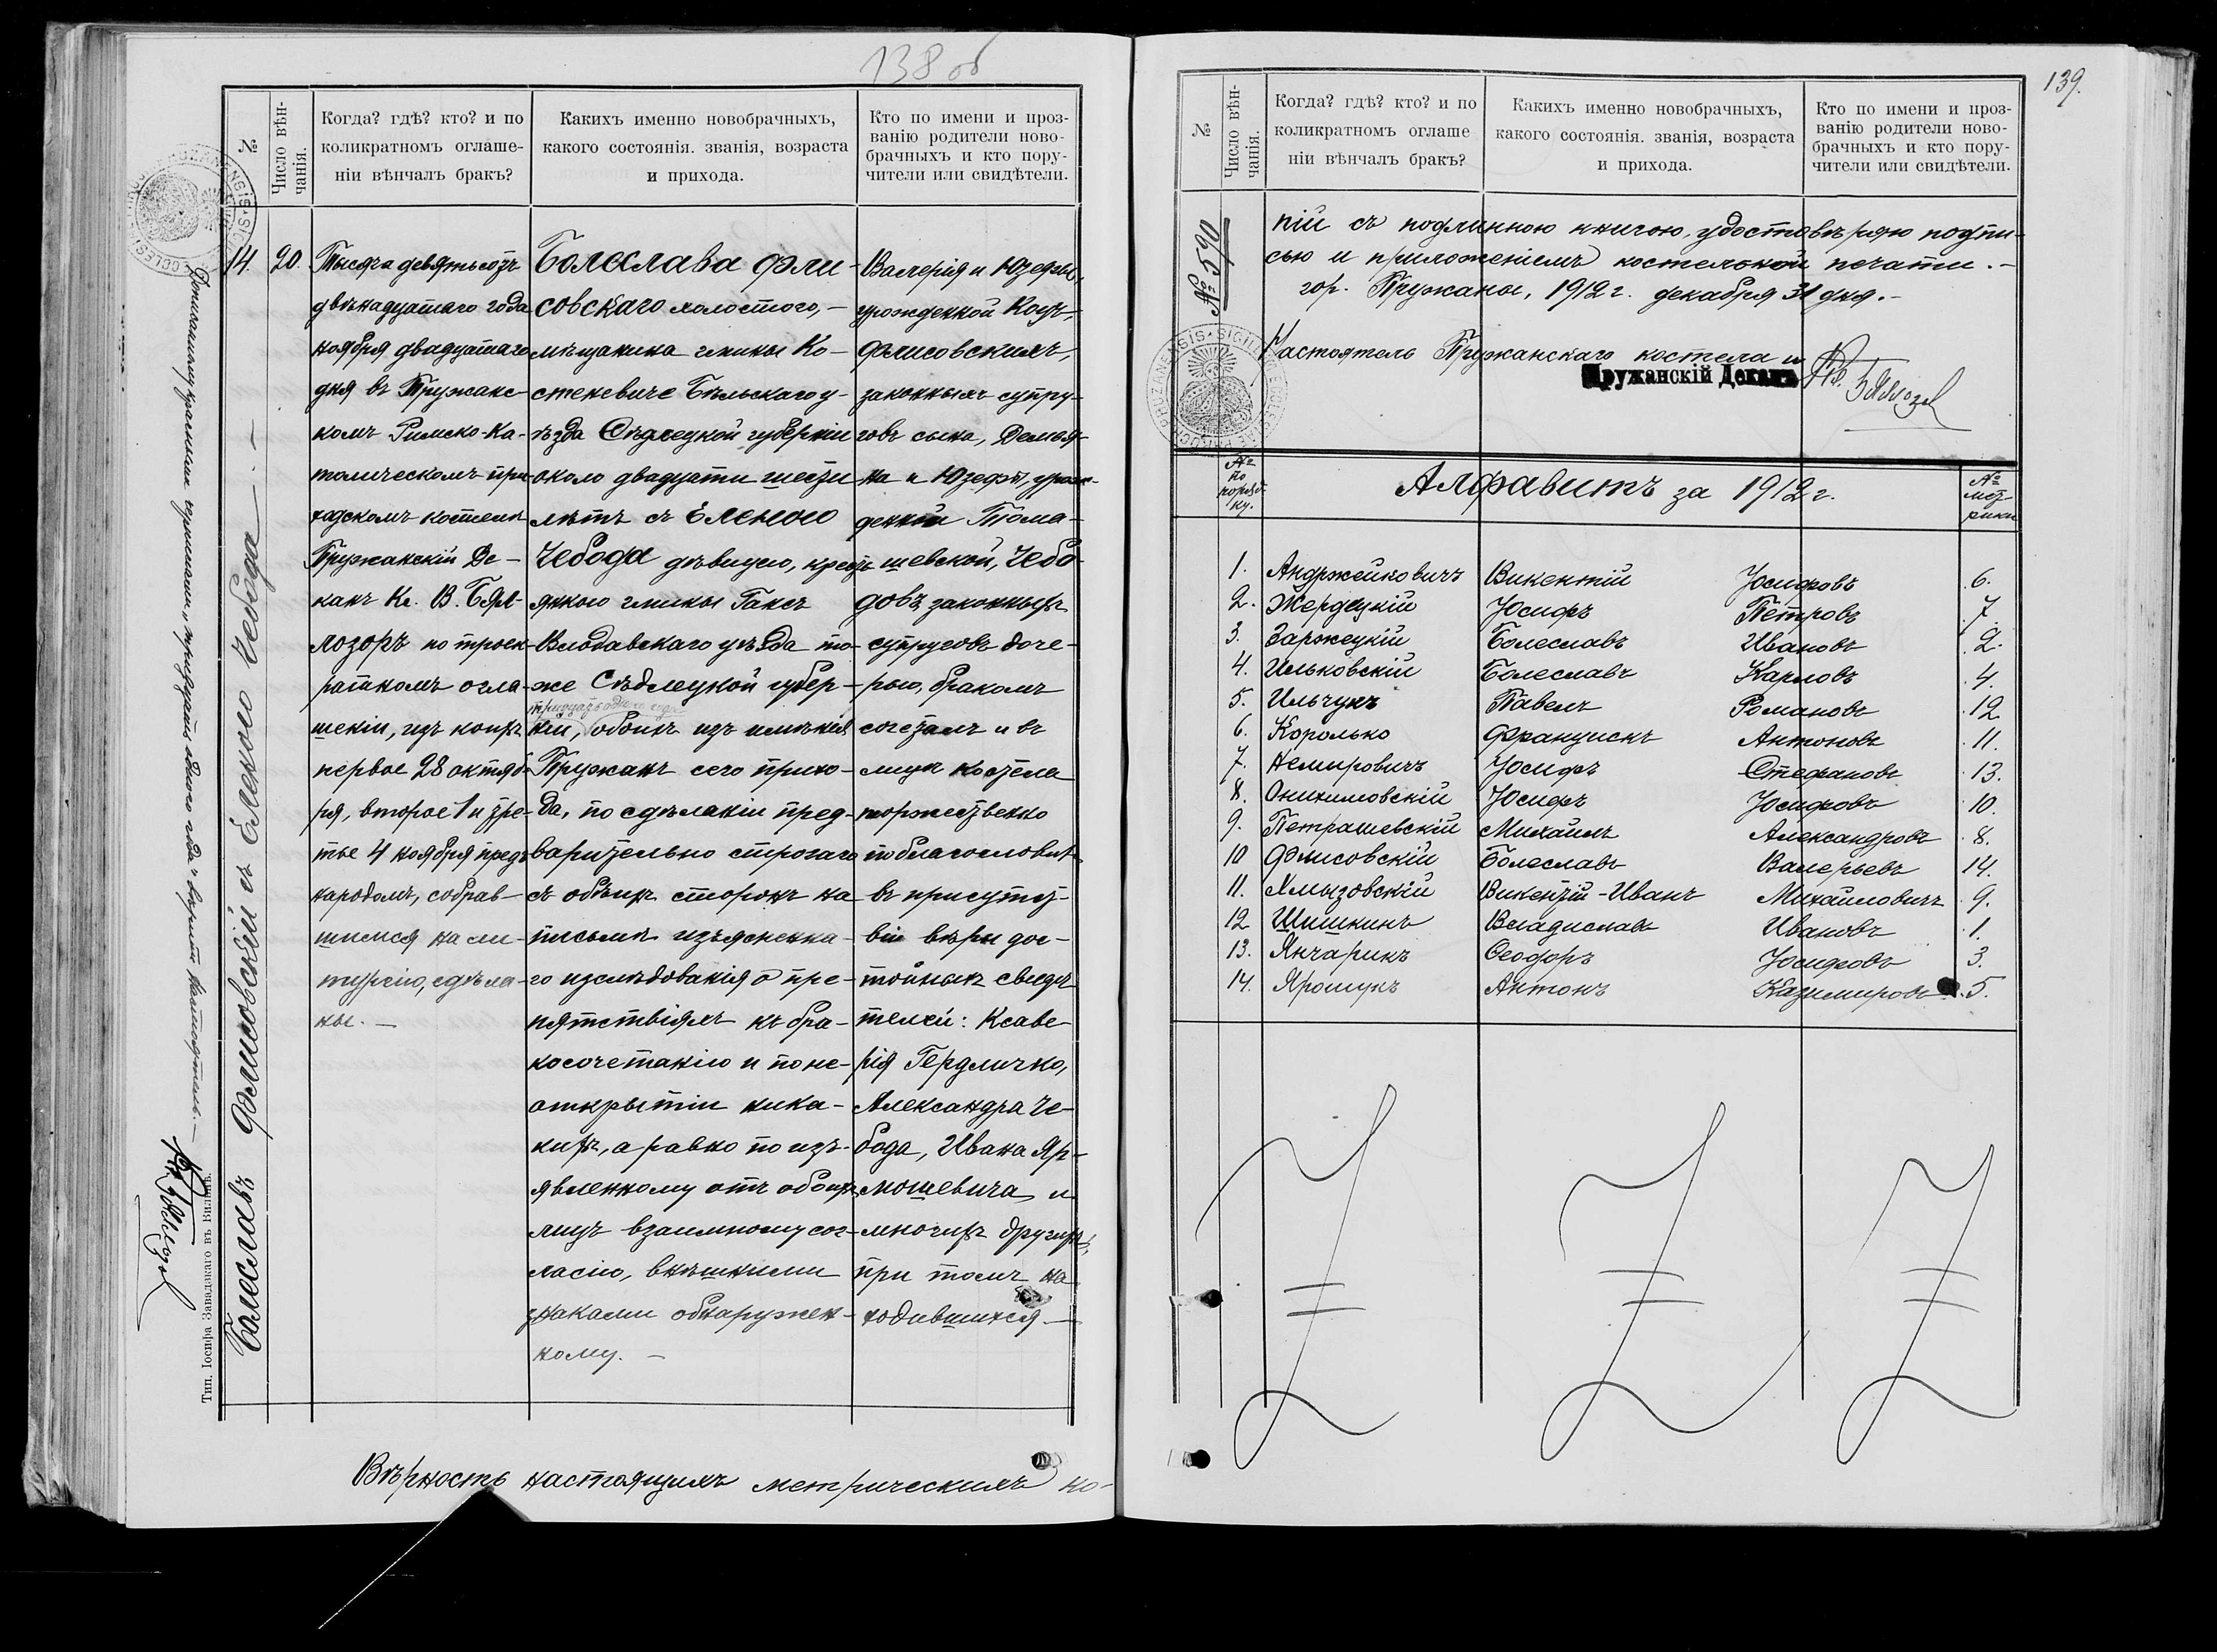 138 об
№
Число вѣн-
чанія.
Когда? гдѣ? кто? и по
коликратномъ оглаше-
ніи вѣнчалъ бракъ?
Какихъ именно новобрачныхъ,
какого состоянія. званія, возраста
и прихода.
Кто по имени и проз-
ванію родители ново-
брачныхъ и кто пору-
чители или свидѣтели.
14.
20.
Болеславъ Фэлисовскій съ Еленою Чебода.—
Тысяча девятьсотъ
двѣнадцатаго года
ноября двадцатаго
дня въ Пружанс
комъ Римско-Ка-
толическомъ при
ходскомъ костелѣ
Пружанскій Де-
канъ Кс. В. Бял-
лозоръ по троек-
ратномъ огла-
шеніи, изъ коихъ
первое 28 октяб-
ря, второе 1 и тре-
тье 4 ноября предъ
народомъ, собрав-
шимся на ли-
тургію, сдѣла-
ны.—
Болеслава Фэли-
совскаго холостого,—
мѣщанина гмины Ко-
стеневиче Бѣльскаго у-
ѣзда Сѣдлецкой губерніи
около двадцати шести
лѣтъ съ Еленою
Чебода дѣвицею, крест
янкою гмины Гансъ
Влодавскаго уѣзда то-
же Сѣдлецкой губер-
ніи, обоихъ изъ имѣнія
Пружанъ сего прихо-
да, по сдѣланіи пред-
варительно строгаго
съ обѣихъ сторонъ на
письмѣ изъясненна-
го изслѣдованія о пре-
пятствіяхъ къ бра-
косочетанію и по не-
открытіи ника-
кихъ, а равно по изъ-
явленному отъ обоихъ
лицъ взаимному сог-
ласію, внѣшними
знаками обнаружен-
ному.—
Валерія и Юзефы,
урожденной Коцъ,
Фэлисовскихъ,
законныхъ супру-
говъ сына, Демья-
на и Юзефы, урож-
денной Тома-
шевской, Чебо-
довъ законныхъ
супруговъ доче-
рью, бракомъ
сочеталъ и въ
лицѣ костела
торжественно
поблагословилъ
въ присутст-
віи вѣры дос-
тойныхъ свидѣ
телей: Ксаве-
рія Гердличко,
Александра Че-
бода, Ивана Яр-
мошевича и
многихъ другихъ,
при томъ на
ходившихся.—
Тип. Іосифа Завадзкаго въ Вильнѣ.
Вѣрность настоящихъ метрическихъ ко-
139.
№
Число вѣн-
чанія.
Когда? гдѣ? кто? и по
коликратномъ оглаше
ніи вѣнчалъ бракъ?
Какихъ именно новобрачныхъ,
какого состоянія. званія, возраста
и прихода.
Кто по имени и проз-
ванію родители ново-
брачныхъ и кто пору-
чители или свидѣтели.
№ 590
пій съ подлинною книгою, удостовѣряю подпи-
сью и приложеніемъ костельной печати.—
гор. Пружаны, 1912 г. декабря 31 дня.—
Настоятель Пружанскаго костела и
Пружанскій Деканъ
№ по порядку.
Алфавитъ за 1912 г.
№ метрики
1. Андржейковичъ Викентій Юсифовъ 6.
2. Жердецкій Юсифъ Петровъ 7.
3. Заржецкій Болеславъ Ивановъ 2.
4. Ильковскій Болеславъ Карловъ 4.
5. Ильчукъ Павелъ Романовъ 12
6. Королько Францискъ Антоновъ 11.
7. Немировичъ Юсифъ Стефановъ 13.
8. Онихимовскій Юсифъ Юсифовъ 10.
9. Петрашевскій Михаилъ Александровъ 8.
10 Фэлисовскій Болеславъ Валерьевъ 14.
11. Хмызовскій Викентій-Иванъ Михайловичъ 9.
12 Шишкинъ Владиславъ Ивановъ 1.
13. Янчарикъ Ѳеодоръ Юсифовъ 3.
14. Ярошукъ Антонъ Казимировъ 5.